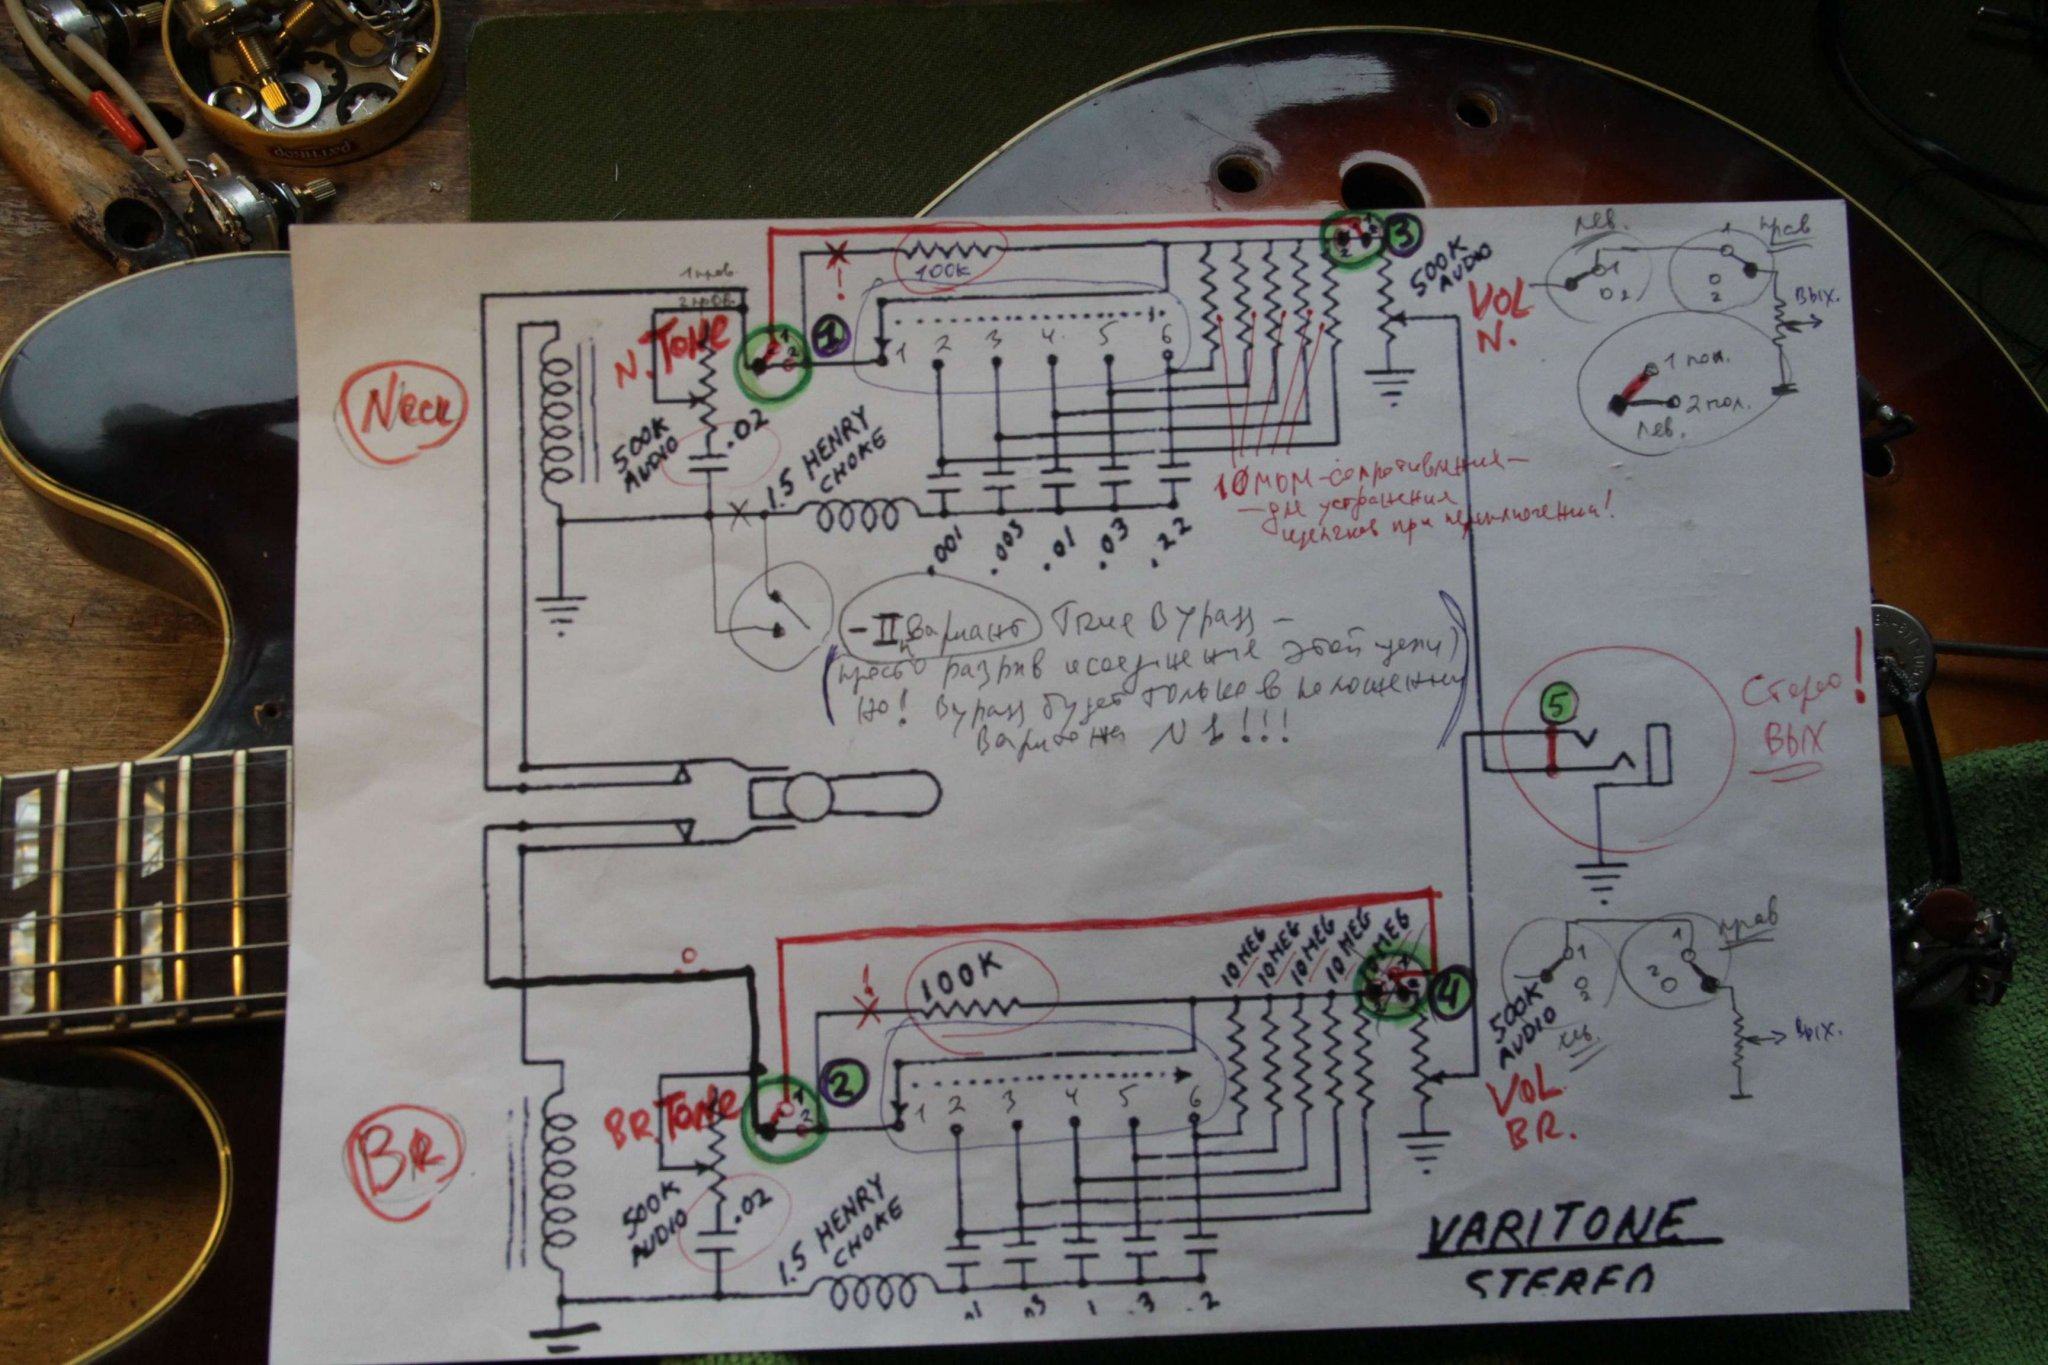 3
лев.
прав
1
100K
500K
AUDIO
VOL
N.
1
2
вых.
1 пол.
2 пол.
лев.
1
2
N. TONE
1
1 2 3 4 5 6
Neck
500K
AUDIO
.02
1.5 HENRY
CHOKE
10 мом-сопротивления-
-для устранения
щелчков при переключении!
.001 .003 .01 .03 .22
-II Вариант True Bypass -
(просто разрыв и соединение этой цепи)
Но! Bypass будет только в положении
Варитона N 1!!!
5
Стерео!
Вых
10MEG 10MEG 10MEG 10MEG 10MEG
прав
100K
4
500K
AUDIO
1
2
вых.
VOL
BR.
BR. TONE
1
2
2
1 2 3 4 5 6
BR
500K
AUDIO
.02
1.5 HENRY
CHOKE
.1 .3 .2
VARITONE
STEREO